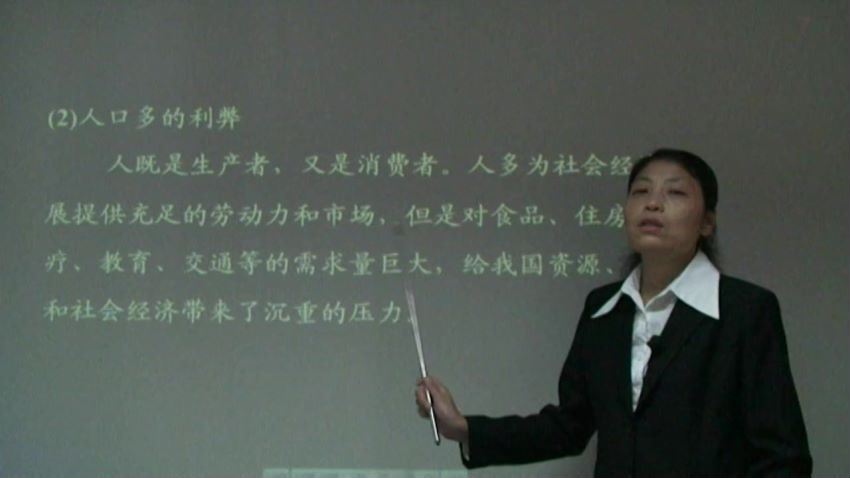 (2)人口多的利弊
人既是生产者、又是消费者。人多为社会经
展提供充足的劳动力和市场，但是对食品、住房
疗、教育、交通等的需求量巨大，给我国资源、
和社会经济带来了沉重的压力。